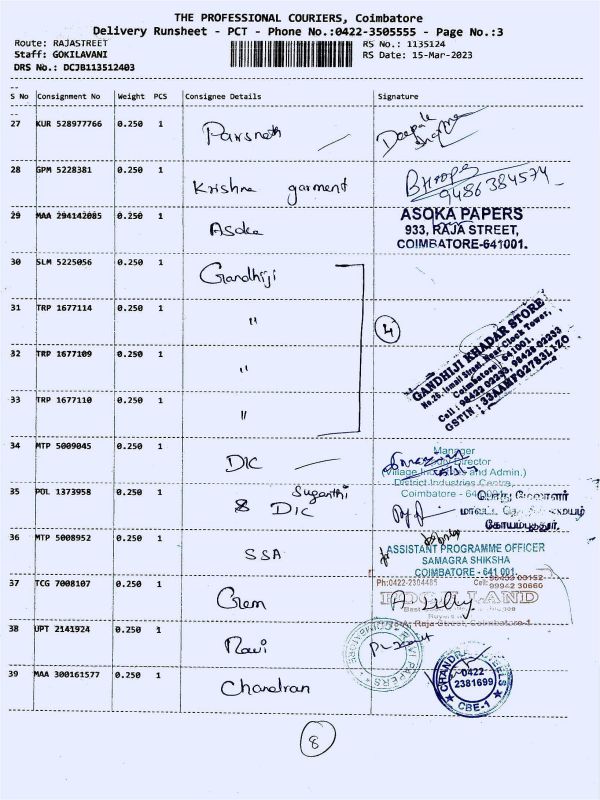 THE PROFESSIONAL COURIERS, Coimbatore
Delivery Runsheet - PCT - Phone No.:0422-3505555 - Page No.:3
Route: RAJASTREET
RS No.: 1135124
Staff: GOKILAVANI
RS Date: 15-Mar-2023
DRS No.: DCJB113512403
S No Consignment No Weight PCS Consignee Details Signature
27 KUR 528977766 0.250 1 Parsnath Deepak Sharma
28 GPM 5228381 0.250 1 Krishna garment Bhoopa
9486384574
29 MAA 294142085 0.250 1 Asoka
ASOKA PAPERS
933, RAJA STREET,
COIMBATORE-641001.
30 SLM 5225056 0.250 1 Gandhiji
31 TRP 1677114 0.250 1 "
4
32 TRP 1677109 0.250 1 "
33 TRP 1677110 0.250 1 "
GANDHIJI KHADAR STORE
No.26, Ismail Street, Near Clock Tower,
Coimbatore - 641001.
Cell : 98422 02253, 98428 02253
GSTIN : 33AAMFG2783L1ZO
34 MTP 5009045 0.250 1 DIC
Manager
Director
(Village Industries and Admin.)
District Industries Centre
Coimbatore - 641001
35 POL 1373958 0.250 1 Suganthi
& DIC
பொது மேலாளர்
மாவட்ட தொழில் மையம்
கோயம்புத்தூர்.
36 MTP 5008952 0.250 1 SSA
ASSISTANT PROGRAMME OFFICER
SAMAGRA SHIKSHA
COIMBATORE - 641 001.
37 TCG 7008107 0.250 1 Gem
Ph:0422-2304485 Cell: 98433 00152
99942 30660
LAND
Raja Street, Coimbatore-1
38 UPT 2141924 0.250 1 Ravi
RAVI PAPERS
39 MAA 300161577 0.250 1 Chandran
CHANDRA STEELS
0422
2381699
CBE-1
8